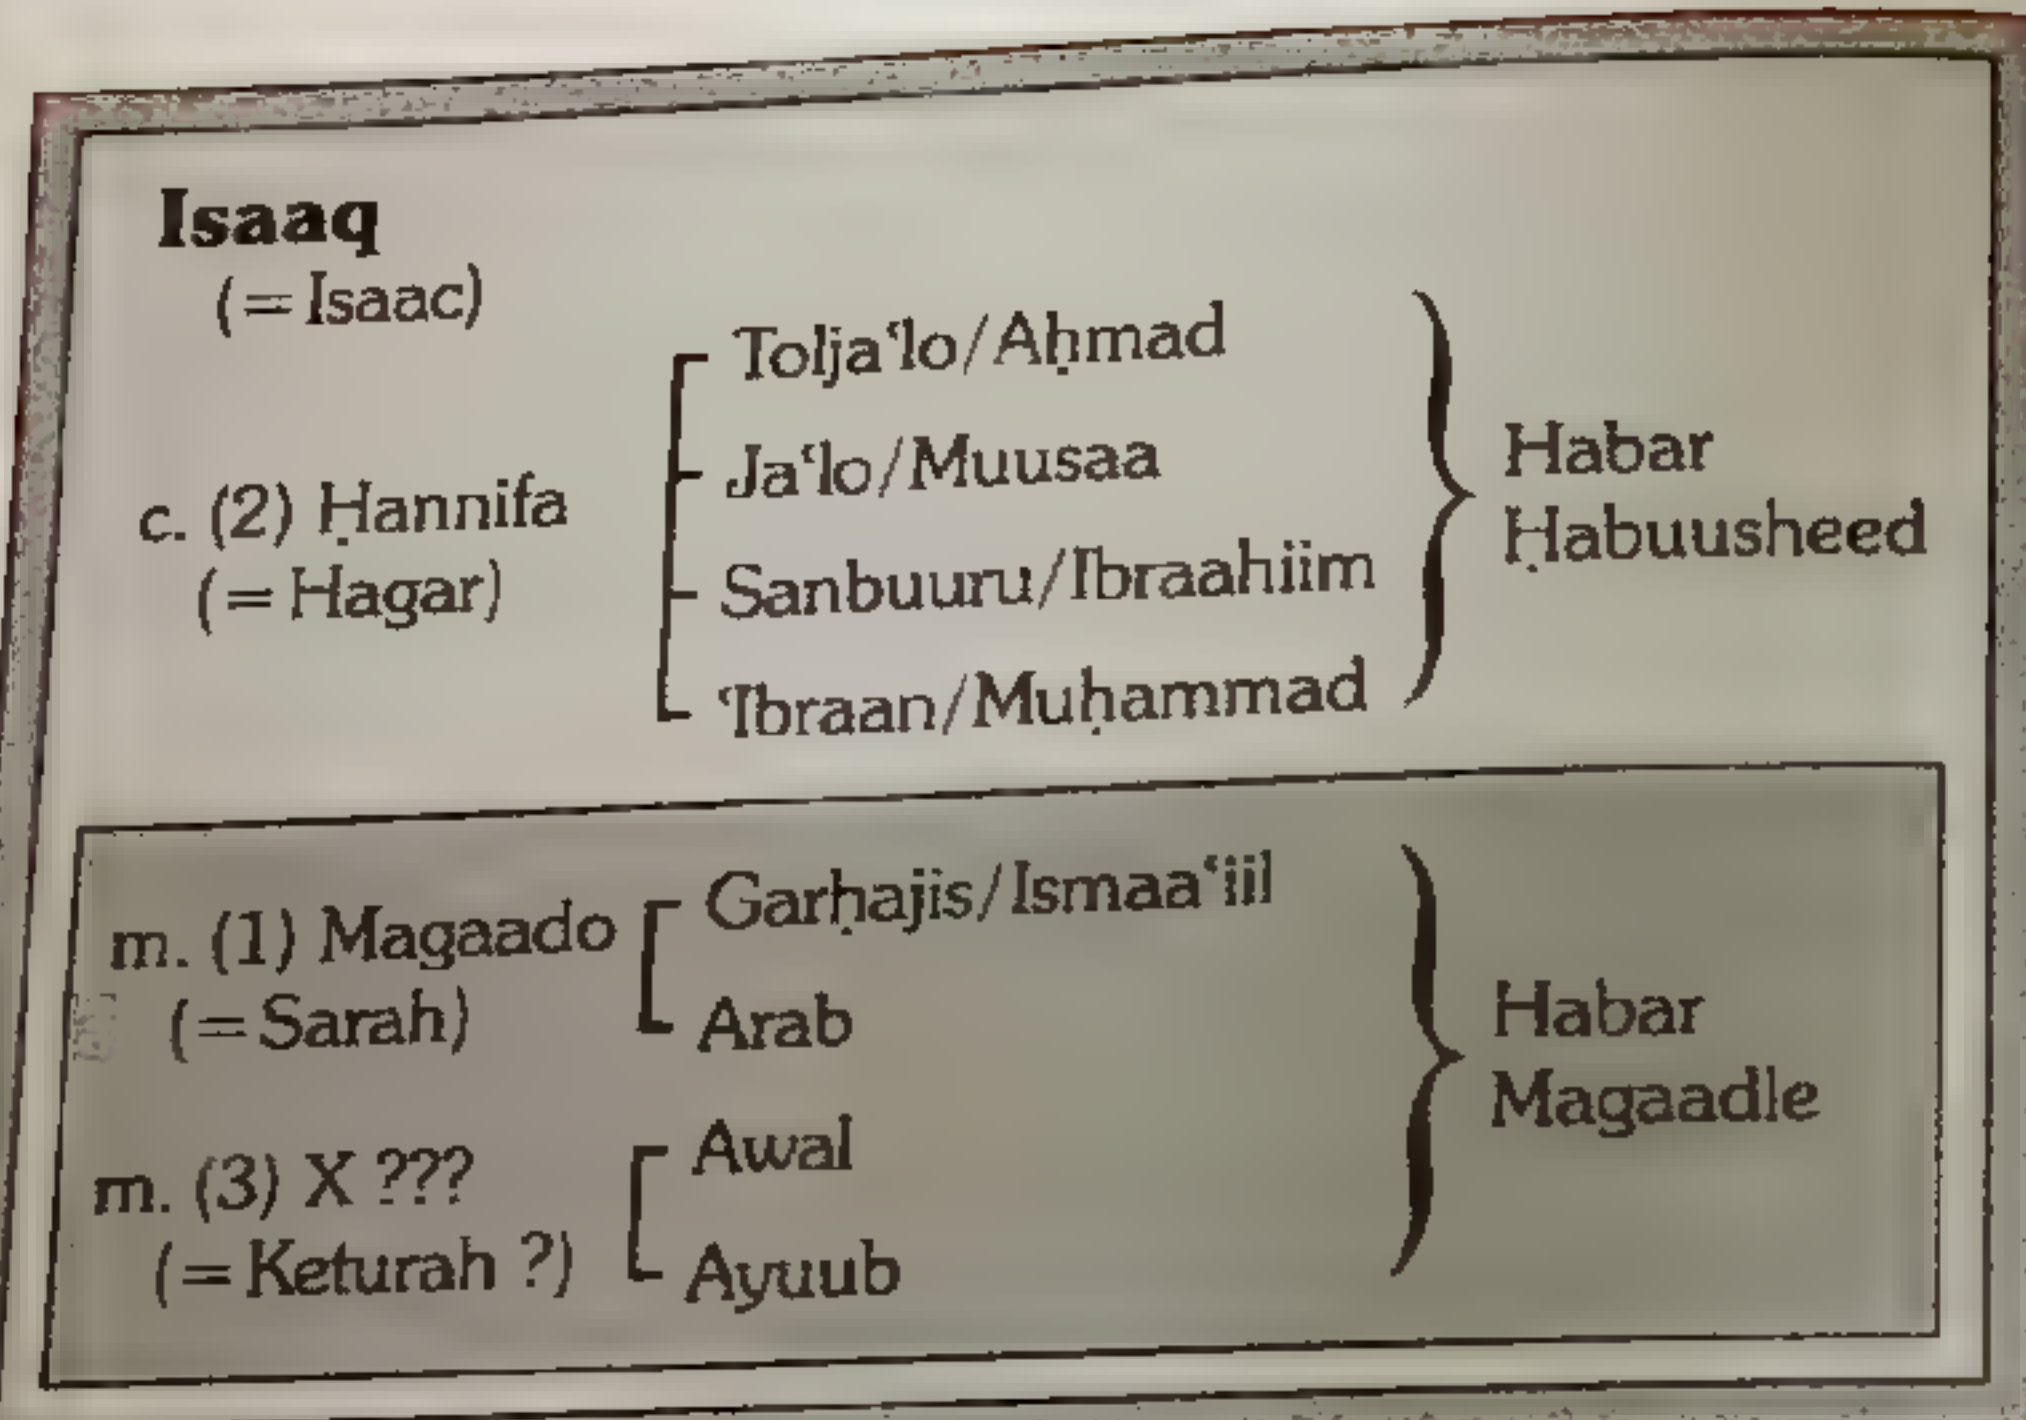 Isaaq
(= Isaac)
c. (2) Ḥannifa
(= Hagar)
Tolja‘lo/Aḥmad
Ja‘lo/Muusaa
Sanbuuru/Ibraahiim
‘Ibraan/Muḥammad
Habar
Ḥabuusheed
m. (1) Magaado
(= Sarah)
Garḥajis/Ismaa‘iil
Arab
m. (3) X ???
(= Keturah ?)
Awal
Ayuub
Habar
Magaadle